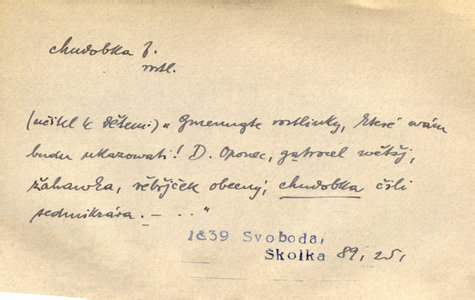 chudobka f.
rostl.
(učitel k dětem:) „Gmenugte rostlinky, které wám
budu ukazowati! D. Oponec, gatrocel wětšj,
žahawka, řebřjček obecný, chudobka čili
sedmikrása. – . . "
1839 Svoboda,
Školka 89, 25,